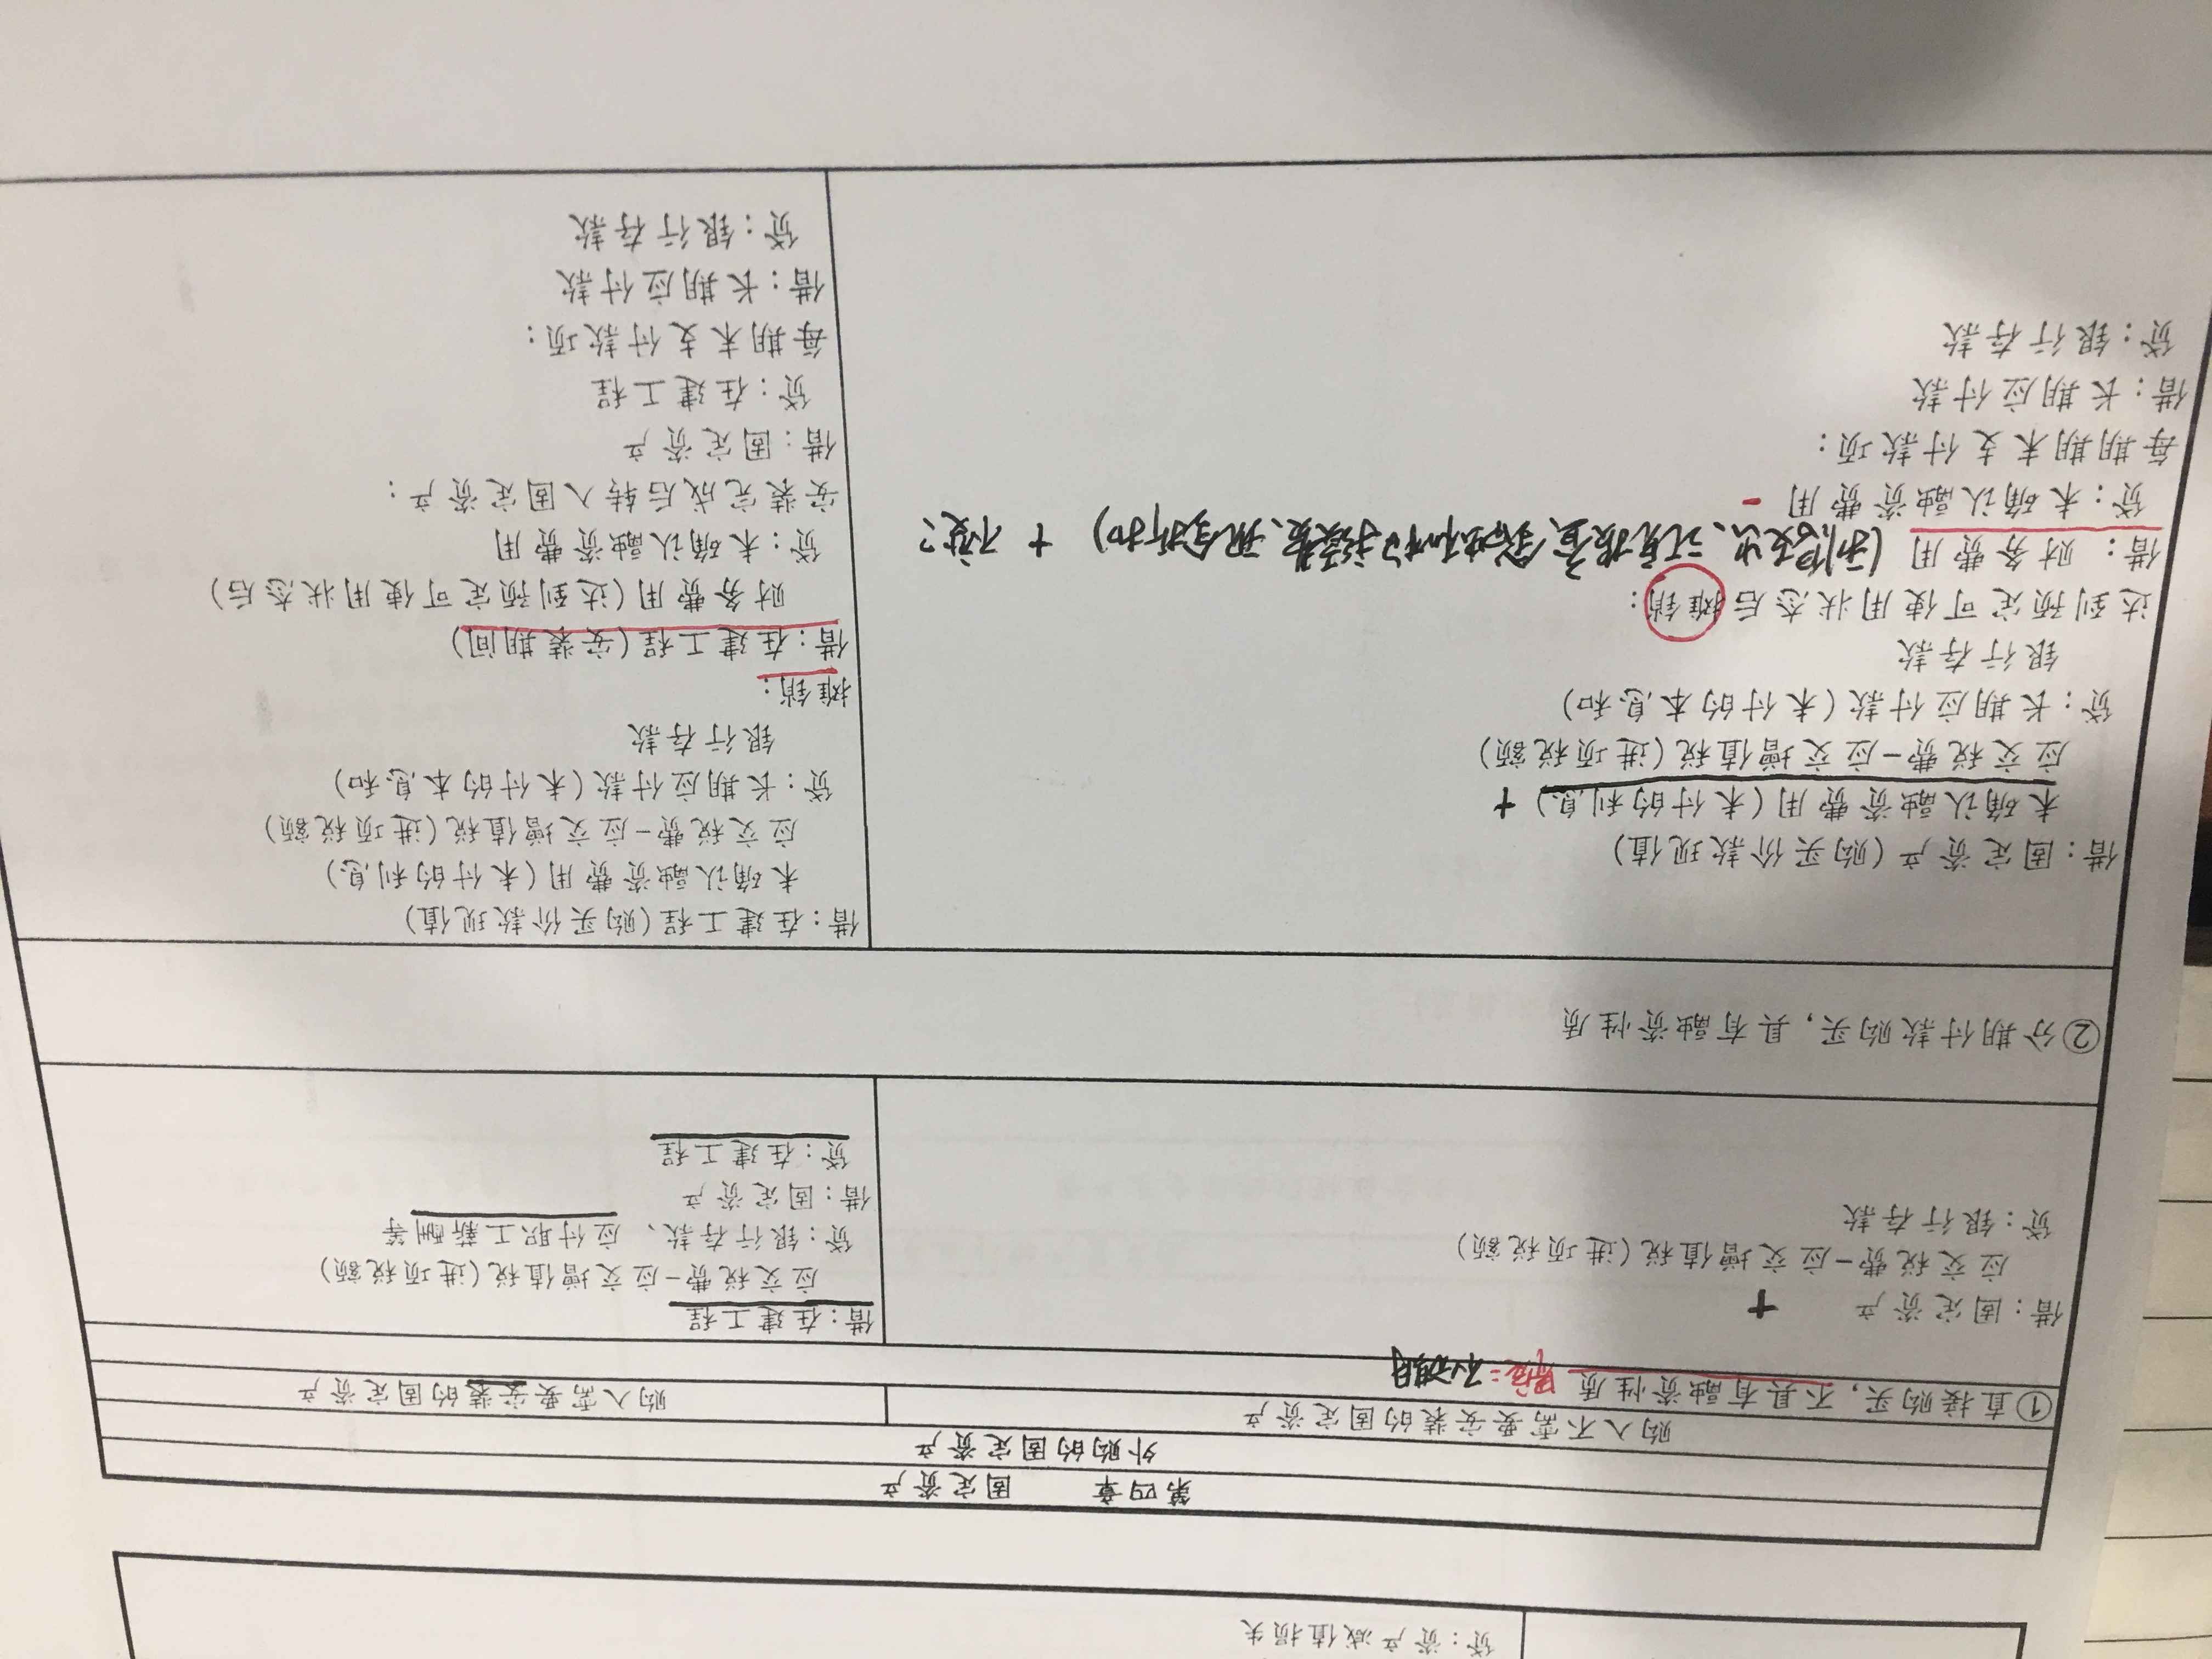 贷：资产减值损失
第四章 固定资产
外购的固定资产
购入不需要安装的固定资产
购入需要安装的固定资产
①直接购买，不具有融资性质
借：固定资产 +
应交税费-应交增值税(进项税额)
贷：银行存款
借：在建工程
应交税费-应交增值税(进项税额)
贷：银行存款、应付职工薪酬等
借：固定资产
贷：在建工程
②分期付款购买，具有融资性质
借：固定资产(购买价款现值)
未确认融资费用(未付的利息) +
应交税费-应交增值税(进项税额)
贷：长期应付款(未付的本息和)
银行存款
达到预定可使用状态后摊销：
借：财务费用 (利息支出、汇兑损益、手续费、现金折扣) + 不变？
贷：未确认融资费用 -
每期期末支付款项：
借：长期应付款
贷：银行存款
借：在建工程(购买价款现值)
未确认融资费用(未付的利息)
应交税费-应交增值税(进项税额)
贷：长期应付款(未付的本息和)
银行存款
摊销：
借：在建工程(安装期间)
财务费用(达到预定可使用状态后)
贷：未确认融资费用
安装完成后转入固定资产：
借：固定资产
贷：在建工程
每期末支付款项：
借：长期应付款
贷：银行存款